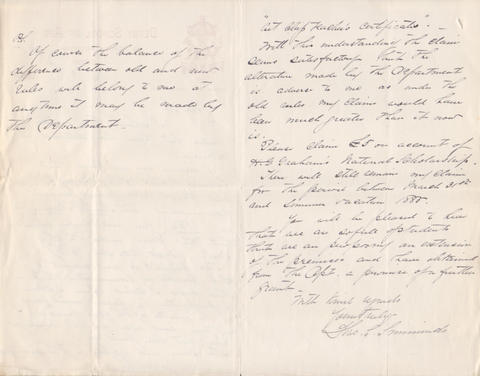 PS.
Of course the balance of the
difference between old and new
rules will belong to me at
anytime it may be made by
the Department.
certificates".
With this understanding the claim
seems satisfactory tho' the
alteration made by the Department
is adverse to me as under the
old rules my claims would have
been much greater than it now
is.
Please claim £5 on account of
Graham's National Scholarship.
There will still remain my claim
for the period between March 31st
and Summer vacation 188
You will be pleased to hear
that we are so full of students
that we are proposing an extension
of the premises and have obtained
from the Dept. a promise of a further
grant.
With kind regards
Yours truly
Simmonds